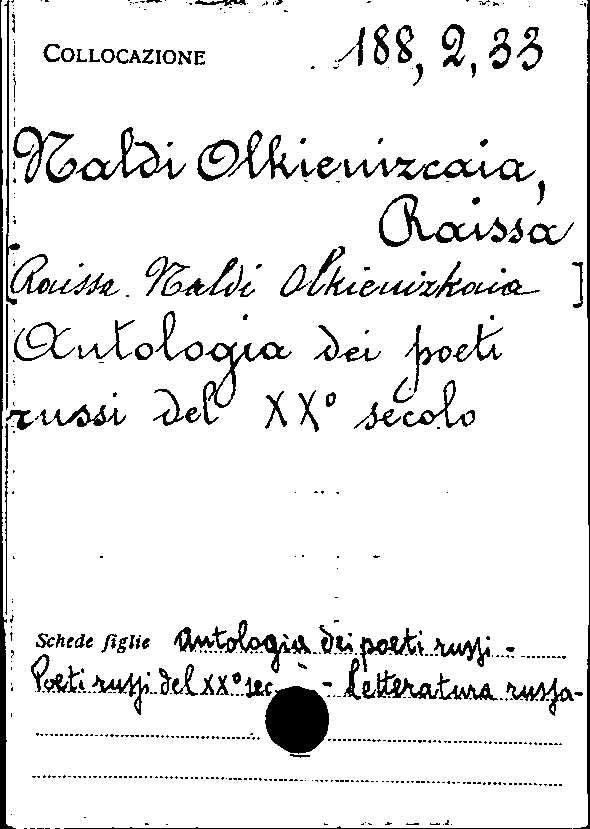 COLLOCAZIONE 188, 2, 33
Naldi Olkienizcaia,
Raissa
[Raissa Naldi Olkienizkaia]
Antologia dei poeti
russi del XX° secolo
Schede figlie Antologia dei poeti russi -
Poeti russi del XX° sec. - Letteratura russa -